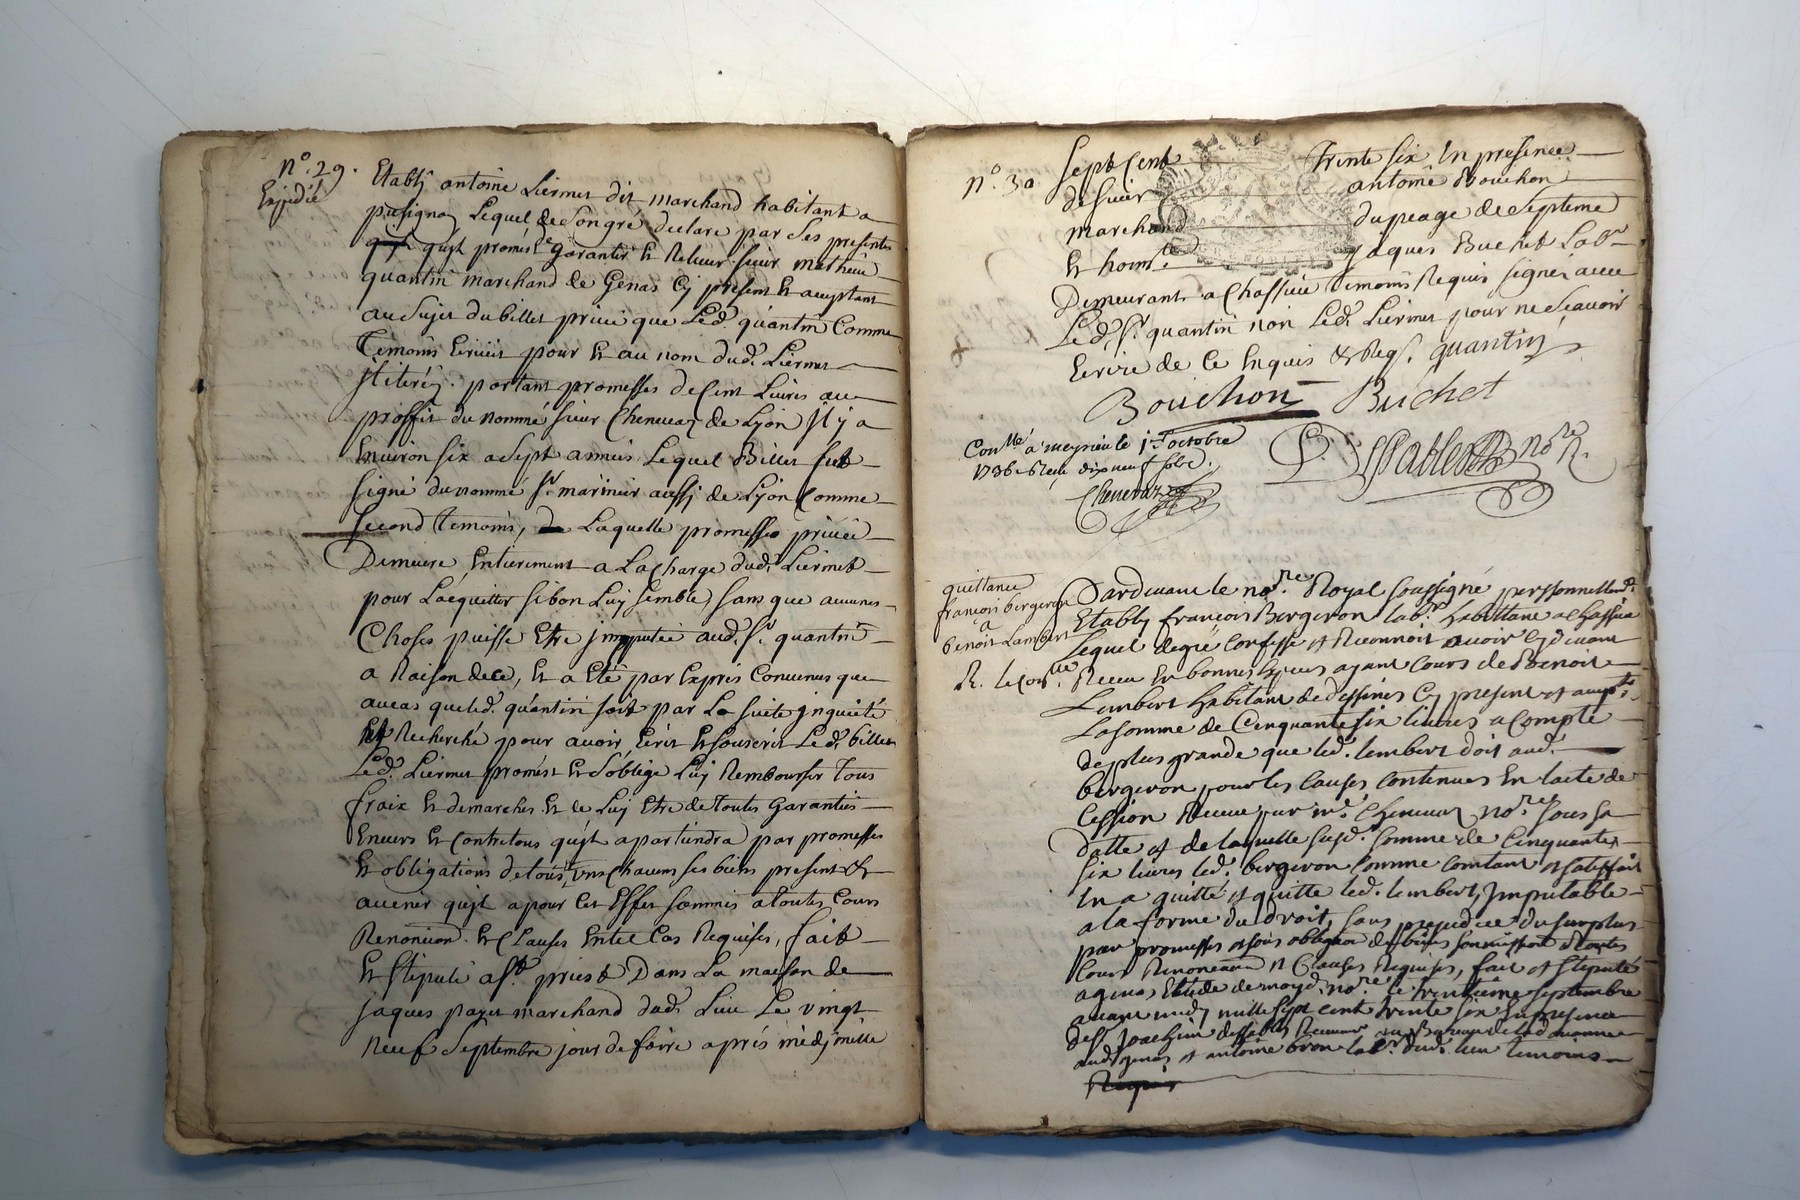 n.º 29.
Expedié
Etably antoine Liermet dit marchand habitant a
pusignaz Lequel de son gré declare par Ses presentes
qu'jl promést garantir et Relever sieur mathieu
quantin marchand de Genas Cy present et acceptant
au Sujet du billet privé que Led. quantin Comme
Temoins Ecrivit pour et au nom dud. Liermet
jlliteré, portant promesses de Cent Livres au
proffit du nommé sieur Chenevaz de Lyon jl y a
Environ six a Sept années Lequel Billet fut
signé du nommé Sr. marinier aussy de Lyon Comme
second Temoins, Laquelle promesse privée
Demeure Entierement a La Charge dud. Liermet
pour L'acquitter si bon Luy Semble, sans que aucunes
Choses puisse Etre jmputée aud. Sr. quantin
a Raison de ce, et a Eté par Exprés Convenus que
au cas que led. quantin soit par La suite jnquieté
et Recherché pour avoir Ecrit et souscrit Led. billet
Led. Liermet promést et s'oblige Luy Rembourser Tous
fraix et demarches et de Luy Etre de toutes Garanties
Envers et Contre tous qu'jl apartiendra par promesses
et obligations de tous uns Chacuns ses biens present &
avenir qu'jl a pour Cet Effet soemmis a Toutes Cours
Renonciaon. et Clauses Entel Cas Requises, fait
et stipulé a St. priest Dans La maison de
jaques payet marchand dud. Lieu Le vingt
neuf Septembre jour de foire aprés midy mille
n.º 30
sept Cent Trente six En presence
de sieur antoine Bouchon
marchand du peage de Septeme
et honnte. jaques Buchet Labr.
Demeurant a Chassieu Temoins Requis signés avec
Led. Sr. quantin non Led. Liermet pour ne Sçavoir
Ecrire de Ce Enquis & Reqs. quantin
Bouchon Buchet
Conllé a meyzieu le 1er octobre
1736 Reçu dix neuf sols.
Chenevaz
Dessables nore R.
quittance
françois bergeron
a
benoit Lambert
Pardevant le nore. Royal soussigné personnellemt.
Etably françois Bergeron labr. habittant a Chassieu
Lequel de gré confesse et Reconnoit avoir cy devant
Receu En bonnes Especes ayant Cours de Benoit
Lembert habitant de dessines Cy present et accept.
La somme de Cinquante six livres a Compte
de plus grande que led. lembert doit aud.
bergeron pour les Causes contenues En l'acte de
Cession Receue par me. Chenevaz nore sous sa
datte et de laquelle susd. somme de Cinquante
six livres led. bergeron Comme Contant et satisfait
En a quitté et quitte led. lembert, jmputable
a la forme du droit, sans prejudice du surplus
par promesses et sous obligaon de biens soumission a toutes
Cours Renonciaon et Clauses Requises, fait et stipulé
a genas Etude de moyd. nore le trentieme septembre
avant midy mille sept cent trente six En presence
de Sr. Joachim dessables Receveur
aud. genas et antoine bron labr. dud. lieu temoins